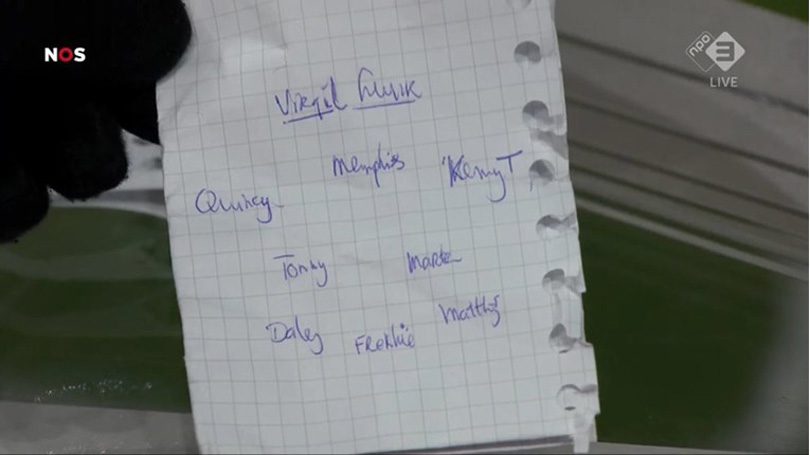 NOS
npo 3
LIVE
Virgil Luuk
Memphis Kenny T
Quincy
Tonny Marten
Daley Frenkie Matthijs